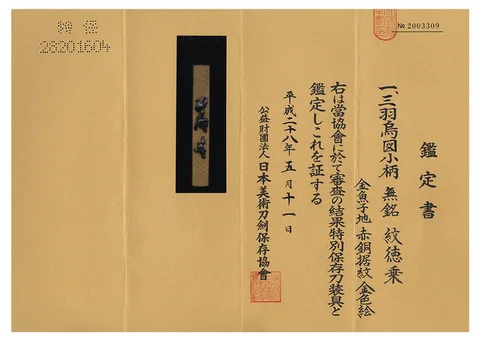 特保
28201604
№ 2003309
鑑定書
一、三羽烏図小柄 無銘 紋徳乗
金魚子地 赤銅据紋 金色絵
右は當協會に於て審査の結果特別保存刀装具と
鑑定しこれを証する
平成二十八年五月十一日
公益財團法人 日本美術刀劍保存協會